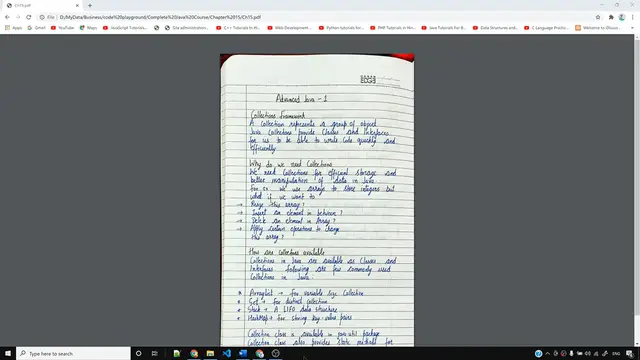 Ch15.pdf
File | D:/MyData/Business/code%20playground/Complete%20Java%20Course/Chapter%2015/Ch15.pdf
Apps
Bookmarks
JavaScript Tutorials
Gmail
YouTube
Maps
Site administration
C++ Tutorials In Hi
Web Development
Python tutorials for
PHP Tutorials in Hi
Java Tutorials For B
Data Structures and
C Language Practic
Welcome to Discus
Advanced Java - 1
Collections Framework
A Collection represents a group of object
Java Collections provide Classes and Interfaces
for us to be able to write code quickly and
efficiently
Why do we need Collections
We need Collections for efficient storage and
better manipulation of data in Java
For ex we use arrays to store integers but
what if we want to
→ Resize this array?
→ Insert an element in between?
→ Delete an element in Array?
→ Apply certain operations to change
this array?
How are Collections available
Collections in Java are available as Classes and
Interfaces Following are few commonly used
Collections in Java.
ArrayList → For variable size Collection
Set → For distinct collection
Stack → A LIFO data structure
HashMap → For storing key-value pairs
Collection class is available in java.util package
Collection class also provides static methods for
Type here to search